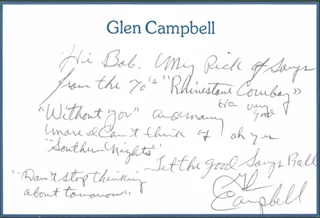 Glen Campbell
Hi Bob. My Pick of Songs
from the 70's "Rhinestone Cowboy"
"Without you" and many was very good
more I can't think of oh yes
"Southern Nights"
Let the good Songs Roll
"Don't stop thinking
about tomorrow"
Glen
Campbell